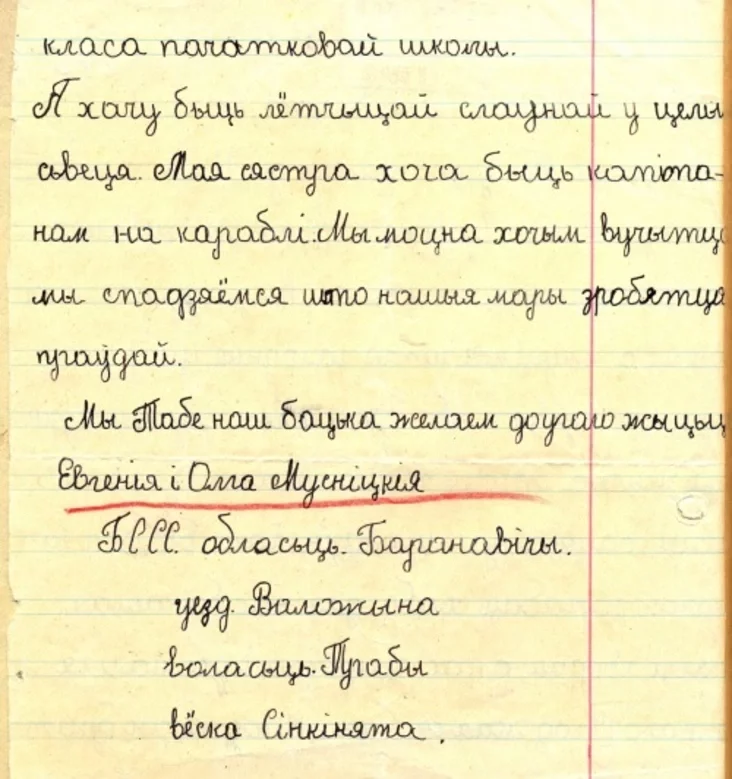 класа початковай школы.
Я хачу быць лётчыцай слаунай у целы
сьвеца. Мая сястра хоча быць капіта-
нам на караблі. Мы моцна хочым вучытца
мы спадзяёмся што нашыя мары зробятца
праўдай.
Мы Табе наш бацька желаем доугаго жыцьц
Евгенія і Олга Мусніцкія
БССС. обласьць. Баранавічы.
уезд. Валожына
воласьць. Трабы
вёска Сінкінята.